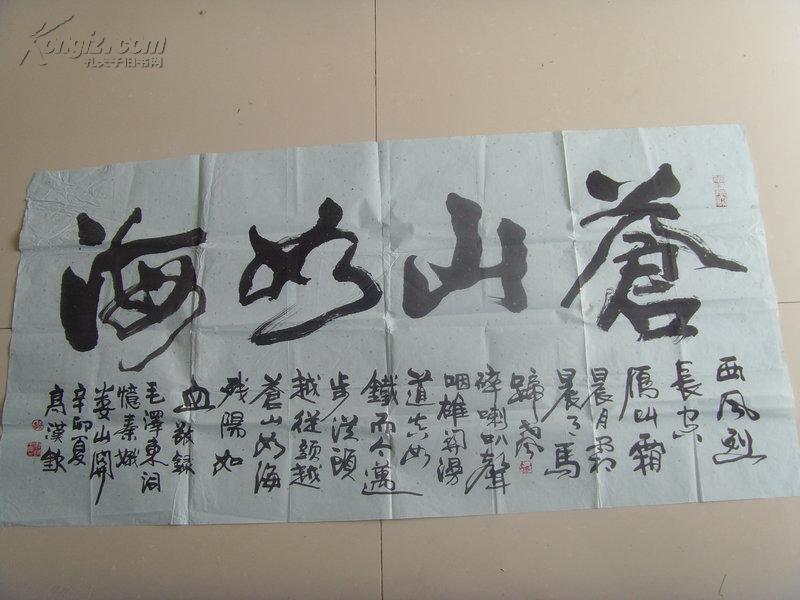 蒼山如海
西风烈
長空
雁叫霜
晨月霜
晨月馬
蹄聲
碎喇叭聲
咽雄関漫
道真如
鐵而今邁
步從頭
越從頭越
蒼山如海
残陽如
血敬録
毛澤東詞
憶秦娥
娄山関
辛卯夏
高漢欽
Kongfz.com
孔夫子旧书网